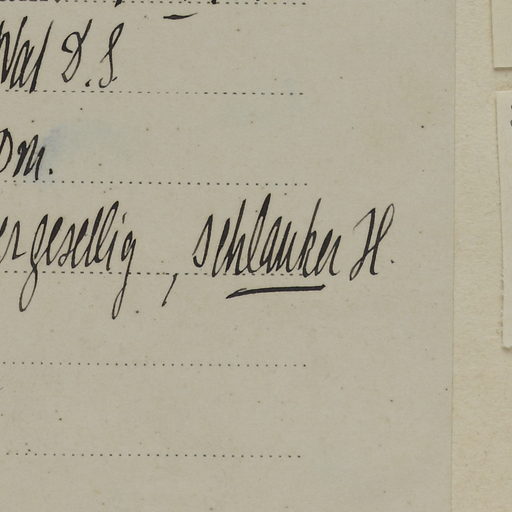 D.S.
Dm.
ergesellig, schlanker H.